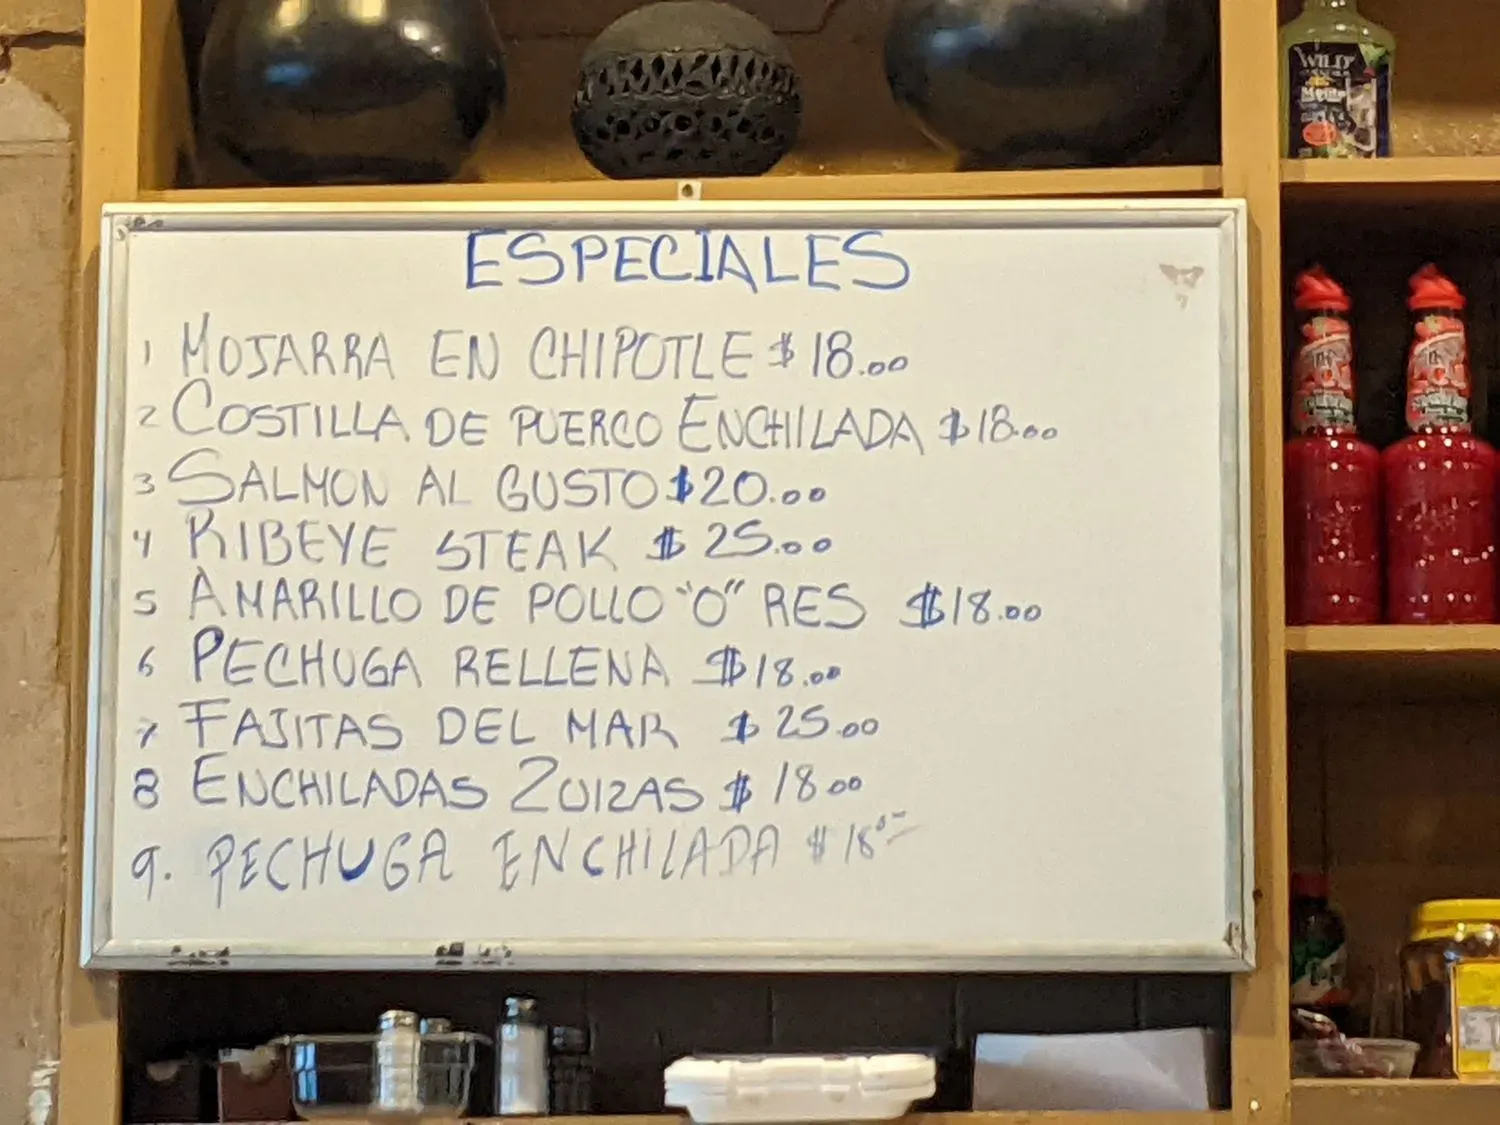 ESPECIALES
1 MOJARRA EN CHIPOTLE $18.00
2 COSTILLA DE PUERCO ENCHILADA $18.00
3 SALMON AL GUSTO $20.00
4 RIBEYE STEAK $25.00
5 AMARILLO DE POLLO "O" RES $18.00
6 PECHUGA RELLENA $18.00
7 FAJITAS DEL MAR $25.00
8 ENCHILADAS ZUIZAS $18.00
9. PECHUGA ENCHILADA $18.00
WILD